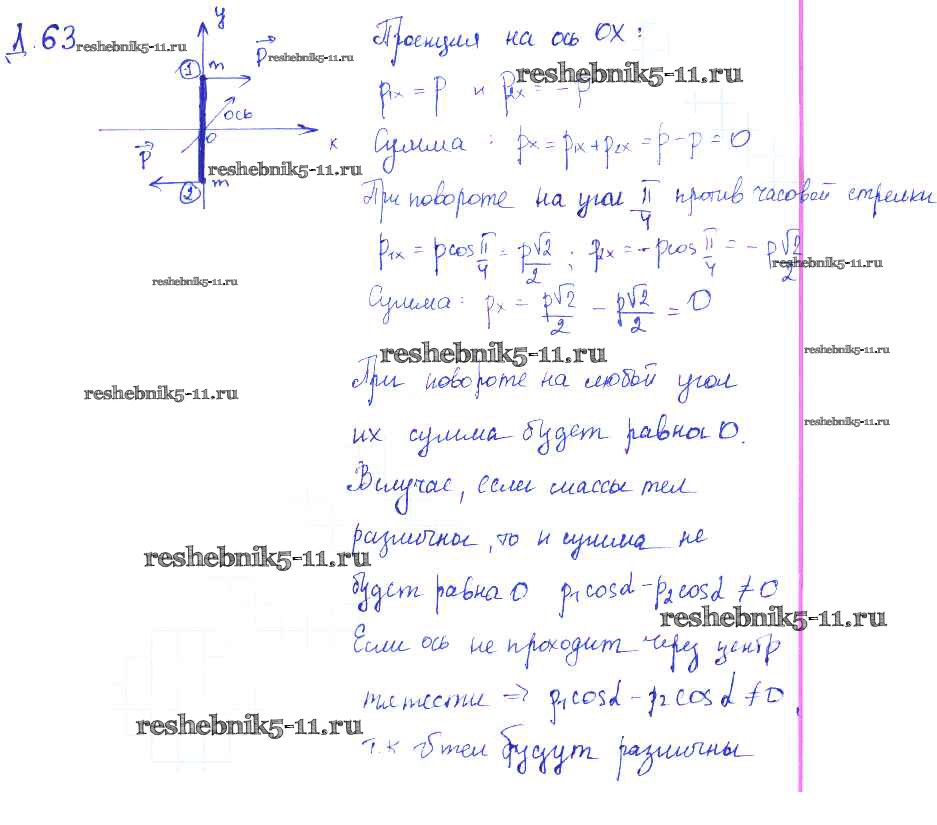 Д.63
reshebnik5-11.ru
y
p
reshebnik5-11.ru
1 m
ось
0
x
p
reshebnik5-11.ru
2 m
reshebnik5-11.ru
reshebnik5-11.ru
Проекция на ось OX:
reshebnik5-11.ru
p₁ₓ = p и p₂ₓ = -p
Сумма: pₓ = p₁ₓ + p₂ₓ = p - p = 0
При повороте на угол π/4 против часовой стрелки
p₁ₓ = p cos π/4 = p√2/2; p₂ₓ = -p cos π/4 = -p√2/2
reshebnik5-11.ru
Сумма: pₓ = p√2/2 - p√2/2 = 0
reshebnik5-11.ru
reshebnik5-11.ru
При повороте на любой угол
их сумма будет равна 0.
reshebnik5-11.ru
В случае, если массы тел
различны, то и сумма не
reshebnik5-11.ru
будет равна 0 p₁cosα - p₂cosα ≠ 0
reshebnik5-11.ru
Если ось не проходит через центр
тяжести => p₁cosα - p₂cosα ≠ 0,
reshebnik5-11.ru
т.к тел будут различны